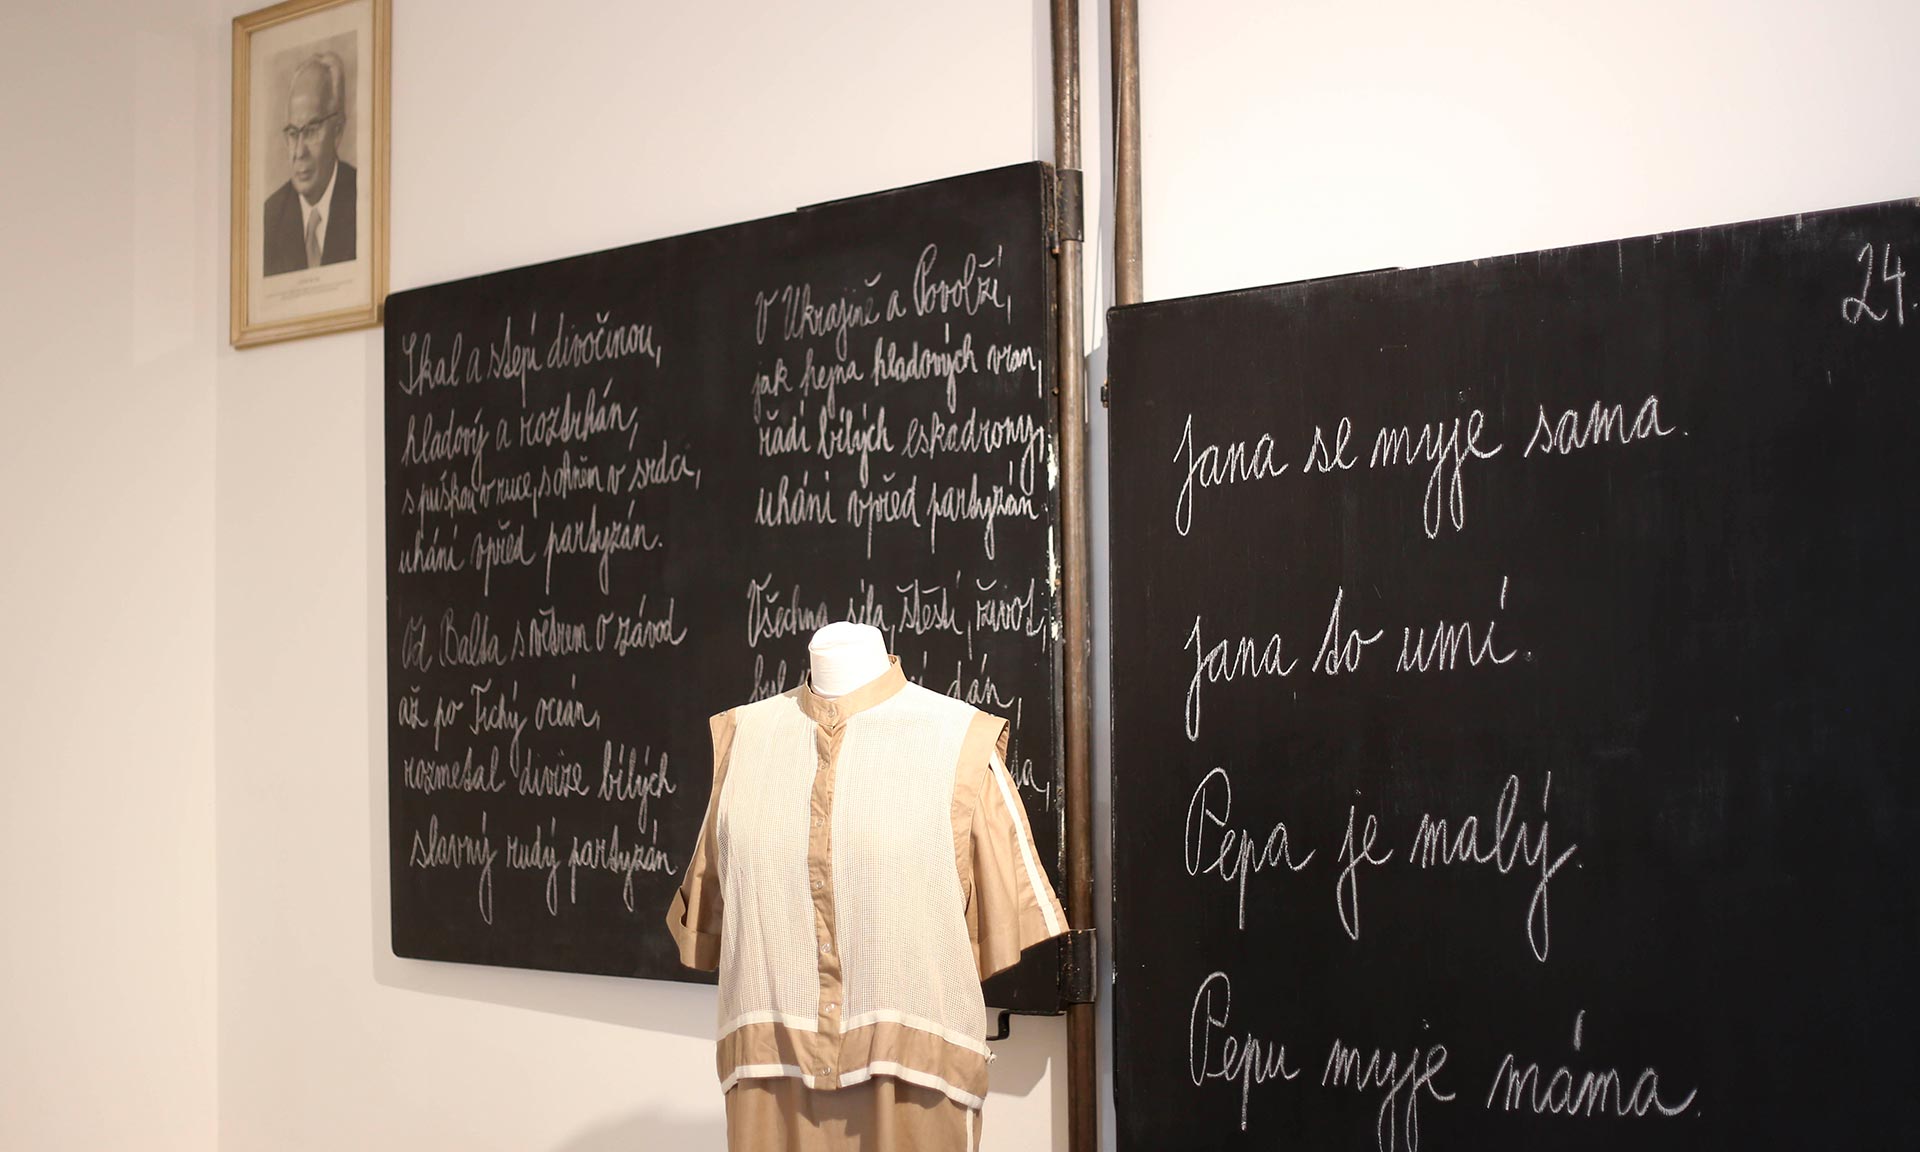 Skal a stepí divočinou,
hladový a roztrhán,
s puškou v ruce, s ohněm v srdci,
uhání vpřed partyzán.
Od Balta s větrem o závod
až po Tichý oceán,
rozmetal divize bílých
slavný rudý partyzán
V Ukrajině a Povolží,
jak hejna hladových vran,
řádí bílých eskadrony,
uhání vpřed partyzán
Všechna síla, štěstí, život,
byl dán,
24.
Jana se myje sama.
Jana to umí.
Pepa je malý.
Pepu myje máma.